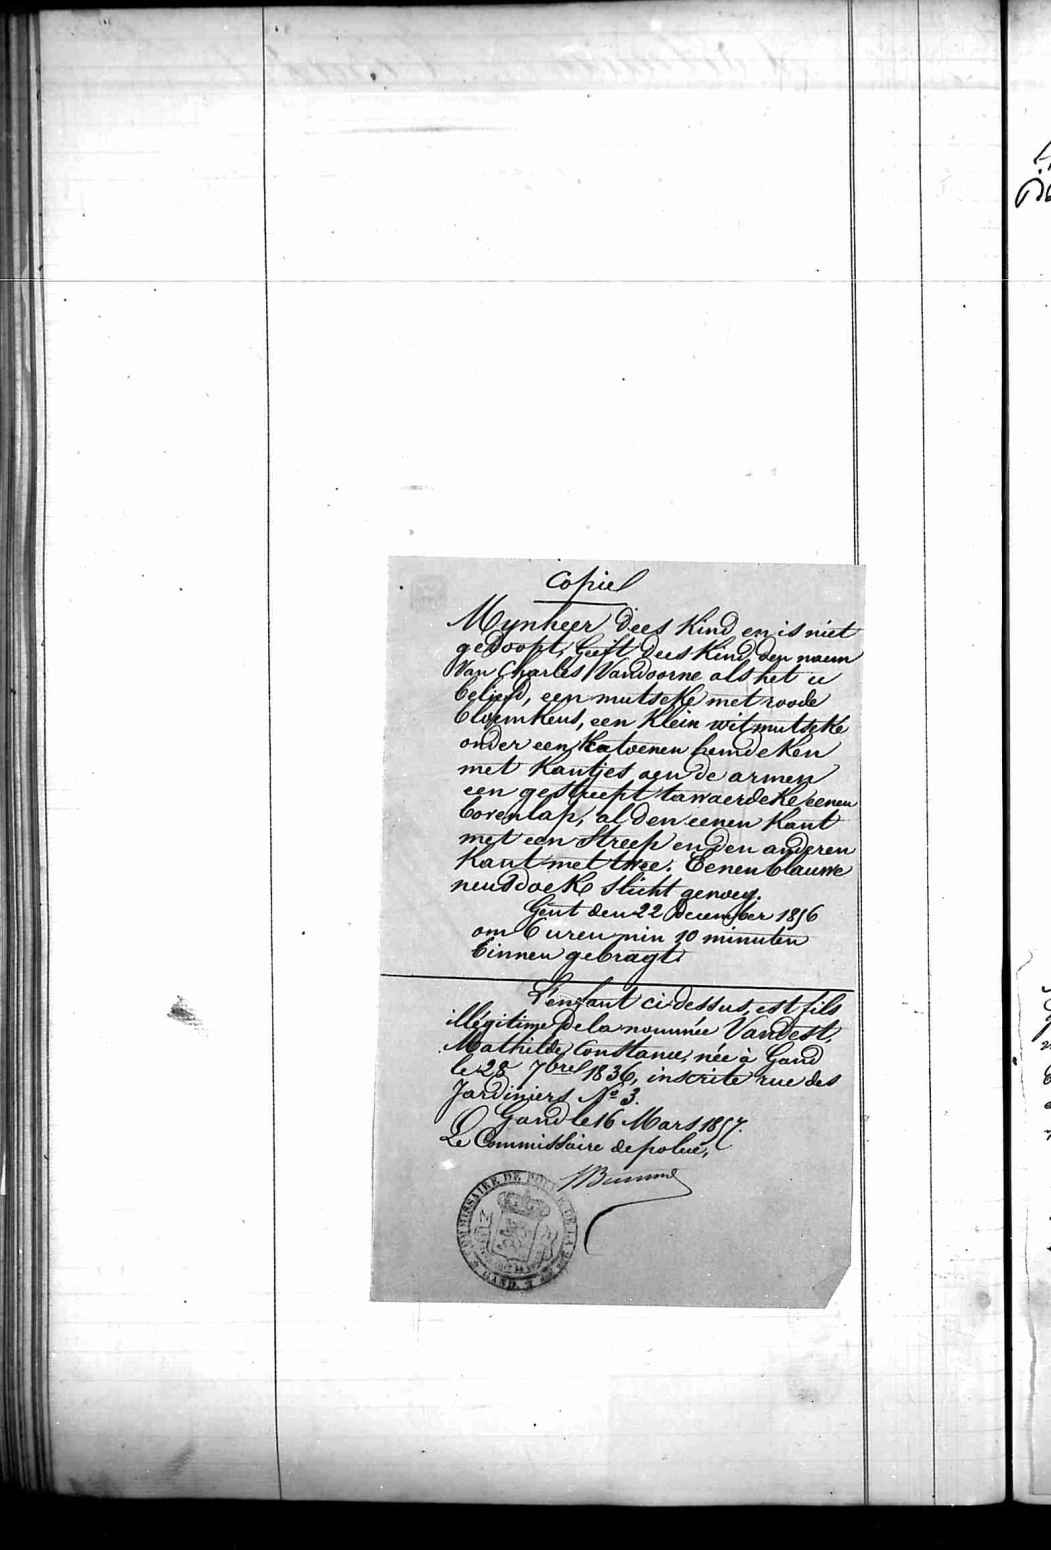 Copie
Mynheer dees Kind en is niet
gedoopt, Geeft dees Kind den naem
Van Charles Vandoorne als het u
beliefd, een mutseke met roode
bloemkens, een klein wit mutseke
onder een Katoenen hemdeken
met Kantjes aen de armen
een gestreept tawaerdeke eenen
bovenlap, al den eenen Kant
met een Streep en den anderen
Kant met twee. Eenen blauwe
neusdoek slicht genoeg.
Gent den 22 December 1856
om 6 uren min 10 minuten
binnen gebragt.
L'enfant ci-dessus, est fils
illégitime de la nommée Vandest,
Mathilde Constance, née à Gand
le 28 7bre 1836, inscrite rue des
Jardiniers No 3.
Gand le 16 Mars 1857.
Le Commissaire de police,
COMMISSAIRE DE POLICE DE LA
GAND